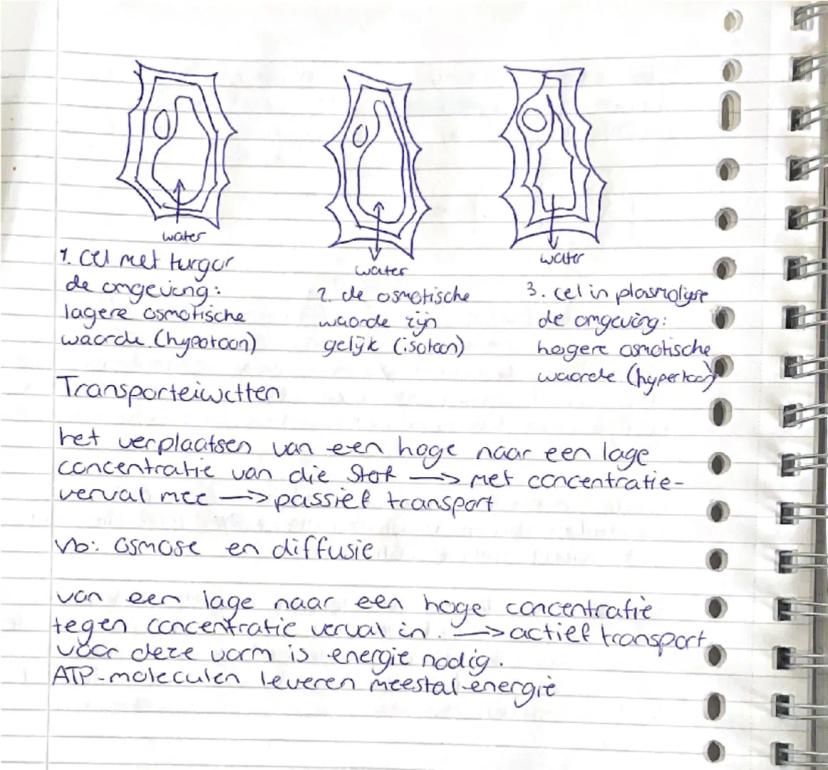 water
1. cel met turgor
de omgeving:
lagere osmotische
waarde (hypotoon)
water
2. de osmotische
waarde zijn
gelijk (isotoon)
water
3. cel in plasmolyse
de omgeving:
hogere osmotische
waarde (hypertoon)
Transporteiwitten
het verplaatsen van een hoge naar een lage
concentratie van die stof —> met concentratie-
verval mee —> passief transport
Vb: osmose en diffusie
van een lage naar een hoge concentratie
tegen concentratie verval in. —> actief transport
voor deze vorm is energie nodig.
ATP-moleculen leveren meestal energie